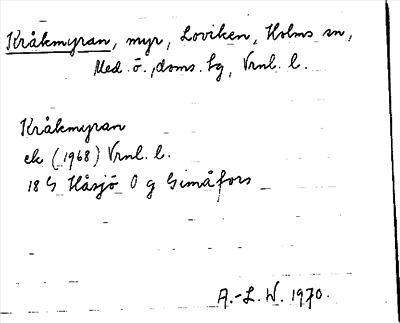 Kråkmyran, myr, Loviken, Holms sn,
Med. ö. doms. sg, Vrnl. l.
Kråkmyran
ek (1968) Vrnl. l.
18 G Håsjö 0 g Gimåfors
A.-L. W. 1970.